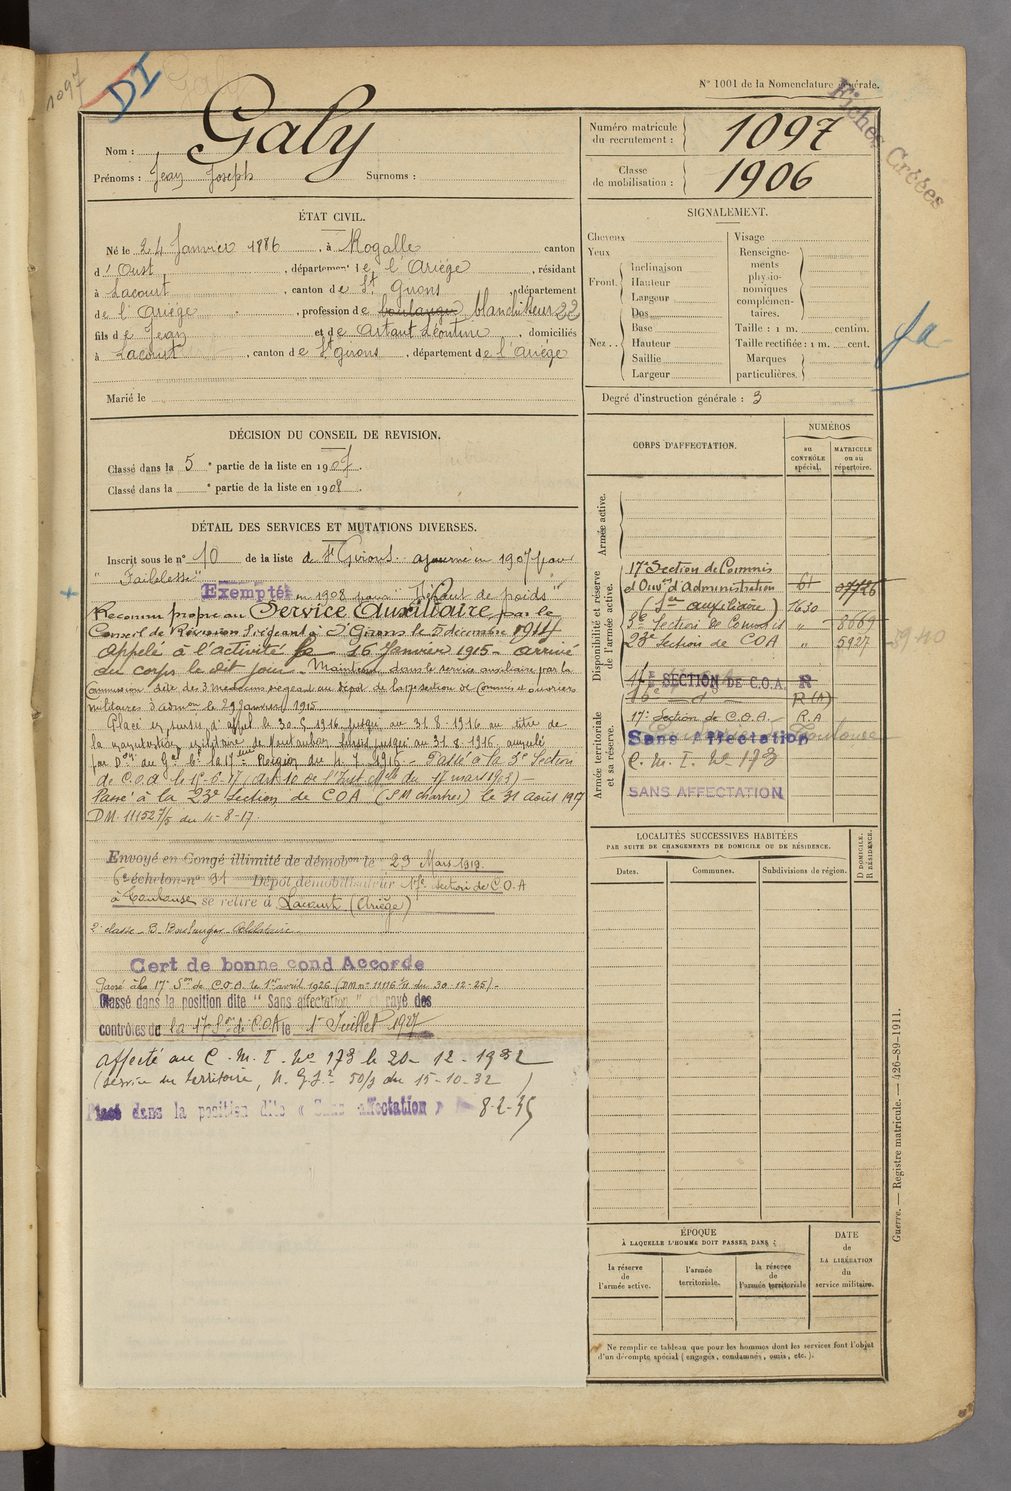 1097
DI
N° 1001 de la Nomenclature générale.
Fiches Créées
Nom : Galy
Prénoms : Jean Joseph Surnoms :
Numéro matricule du recrutement : 1097
Classe de mobilisation : 1906
ÉTAT CIVIL.
Né le 24 Janvier 1886, à Rogalle canton
d'Oust, département de l'Ariège, résidant
à Lacourt, canton de St Girons, département
de l'Ariège, profession de boulanger blanchisseur 22
fils de Jean et de Artaut Léontine, domiciliés
à Lacourt, canton de St Girons, département de l'Ariège
Marié le
SIGNALEMENT.
Cheveux
Yeux
Front. Inclinaison
Hauteur
Largeur
Nez.. Dos
Base
Hauteur
Saillie
Largeur
Visage
Renseignements physionomiques complémentaires.
Taille : 1 m. centim.
Taille rectifiée : 1 m. cent.
Marques particulières.
Degré d'instruction générale : 3
DÉCISION DU CONSEIL DE REVISION.
Classé dans la 5e partie de la liste en 1907.
Classé dans la e partie de la liste en 1908.
DÉTAIL DES SERVICES ET MUTATIONS DIVERSES.
Inscrit sous le n° 10 de la liste de St Girons. ajourné en 1907 pour
"Faiblesse"
Exempté en 1908 pour "Défaut de poids"
Reconnu propre au Service Auxiliaire par le
Conseil de Révision siégeant à St Girons le 5 décembre 1914
Appelé à l'activité le 16 Janvier 1915 - arrivé
au corps le dit jour. Maintenu dans le service auxiliaire par la
Commission dite des 3 médecins siégeant au dépôt de la 17e section de Commis et ouvriers
militaires d'admon le 29 Janvier 1915
Placé en sursis d'appel le 30.5.1916 jusqu'au 31.8.1916 au titre de
la manutention militaire de Montauban jusqu'au 31.8.1916 annulé
par Don du Gal Ct la 17ème Région du 7 1916 - Passé à la 3e Section
de C.O.A. le 15-6-17 (Art 10 de l'Inst Melle du 17 mars 1903) -
Passé à la 23e Section de C O A (S.M. Chartres) le 31 août 1917
D.M. 111527/5 du 4-8-17.
Envoyé en Congé illimité de démobon le 29 Mars 1919.
6e échelon n° 91 Dépôt démobilisateur 17e section de C.O.A
à Toulouse se retire à Lacourt (Ariège)
2e classe - B. Boulanger - Célibataire
Cert de bonne cond Accorde
Passé à la 17e Son de C.O.A le 1er avril 1926 (DM n° 11176 /11 du 30-12-25) -
Classé dans la position dite "Sans affectation" rayé des
contrôles de la 17e Son de C.O.A le 1er Juillet 1927
Affecté au C.M.I. No 173 le 20-12-1932
(service du territoire, N.G.S.2 50/3 du 15-10-32)
Placé dans la position dite « Sans affectation » 8-2-35
CORPS D'AFFECTATION.
NUMÉROS
au CONTRÔLE spécial.
MATRICULE ou au répertoire.
Armée active.
Disponibilité et réserve de l'armée active.
17e Section de Commis
d'Ouvers d'Administration 61 07726
(Ser auxiliaire) 1630
3e Section de Commis " 8669
23e Section de COA " 5927
5940
Armée territoriale et sa réserve.
17e SECTION DE C.O.A. R
16e - d° - R (A)
17e Section de C.O.A. R.A
Toulouse
Sans Affectation
C.M.I. No 173
SANS AFFECTATION
LOCALITÉS SUCCESSIVES HABITÉES
PAR SUITE DE CHANGEMENTS DE DOMICILE OU DE RÉSIDENCE.
Dates. Communes. Subdivisions de région. D DOMICILE. R RÉSIDENCE.
ÉPOQUE
À LAQUELLE L'HOMME DOIT PASSER DANS :
la réserve de l'armée active. l'armée territoriale. la réserve de l'armée territoriale
DATE de LA LIBÉRATION du service militaire.
Ne remplir ce tableau que pour les hommes dont les services font l'objet
d'un décompte spécial (engagés, condamnés, omis, etc.).
Guerre. — Registre matricule. — 426-89-1911.